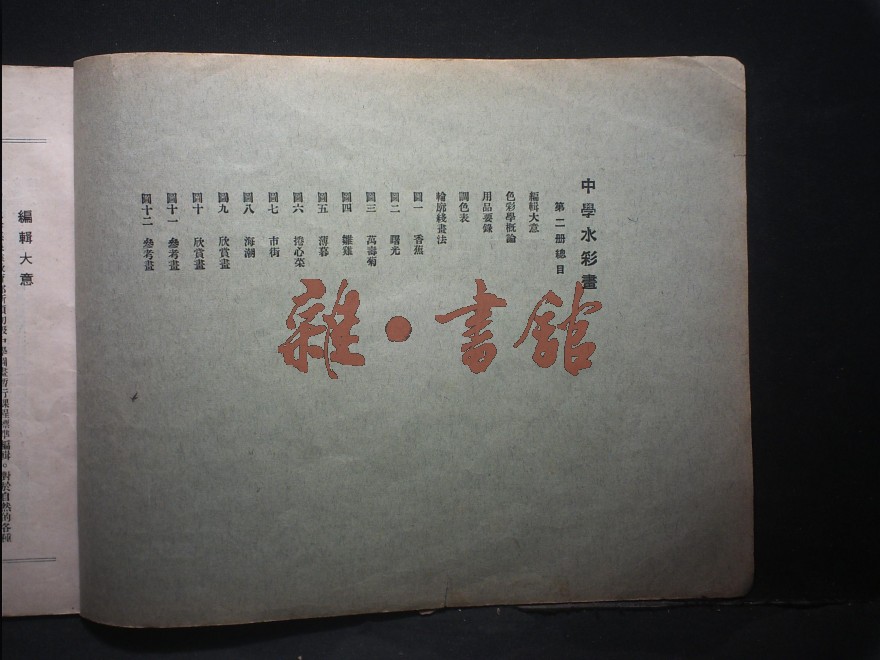 中學水彩畫
第二册總目
編輯大意
色彩學概論
用品要錄
調色表
輪廓綫畫法
圖一 香蕉
圖二 曙光
圖三 萬壽菊
圖四 雛雞
圖五 薄暮
圖六 捲心菜
圖七 市街
圖八 海潮
圖九 欣賞畫
圖十 欣賞畫
圖十一 參考畫
圖十二 參考畫
雜·書館
編輯大意
課程標準編輯。對於自然的各種